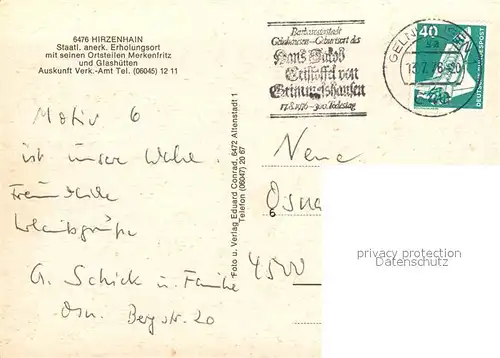 6476 HIRZENHAIN
Staatl. anerk. Erholungsort
mit seinen Ortsteilen Merkenfritz
und Glashütten
Auskunft Verk.-Amt Tel. (06045) 12 11
Barbarossastadt
Gelnhausen – Geburtsort des
Hans Jakob
Christoffel von
Grimmelshausen
17.8.1976 – 300. Todestag
GELNHAUSEN
13.7.76
40
DEUTSCHE BUNDESPOST
Motiv 6
ist unsere Wahl.
Freundliche
Urlaubsgrüße
G. Schick u. Familie
Osn. Bergstr. 20
Foto u. Verlag Eduard Conrad, 6472 Altenstadt 1
Telefon (06047) 20 67
Neue
Osna
4500
privacy protection
Datenschutz